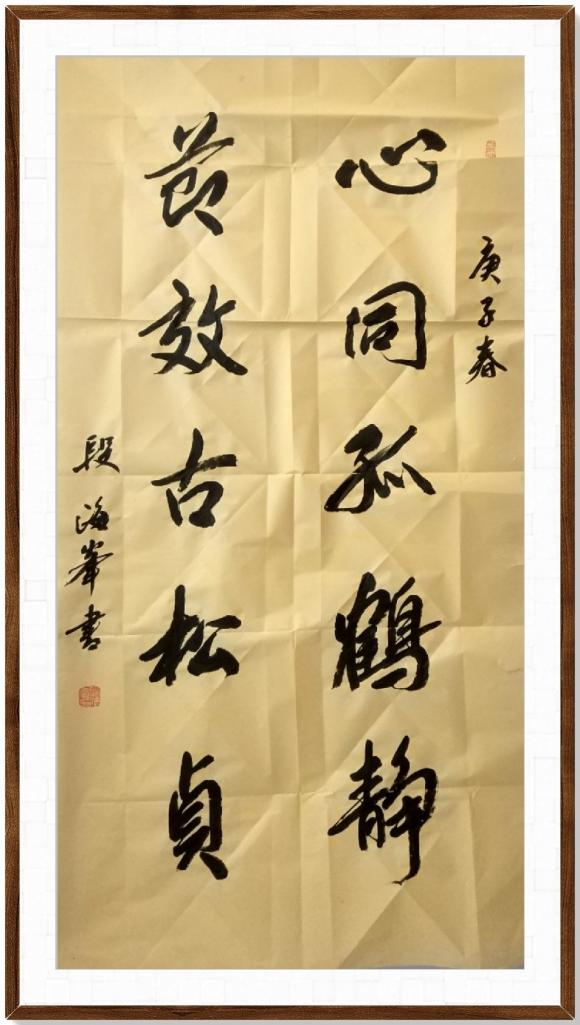 庚子春
心同孤鶴静
節效古松貞
段海峯書